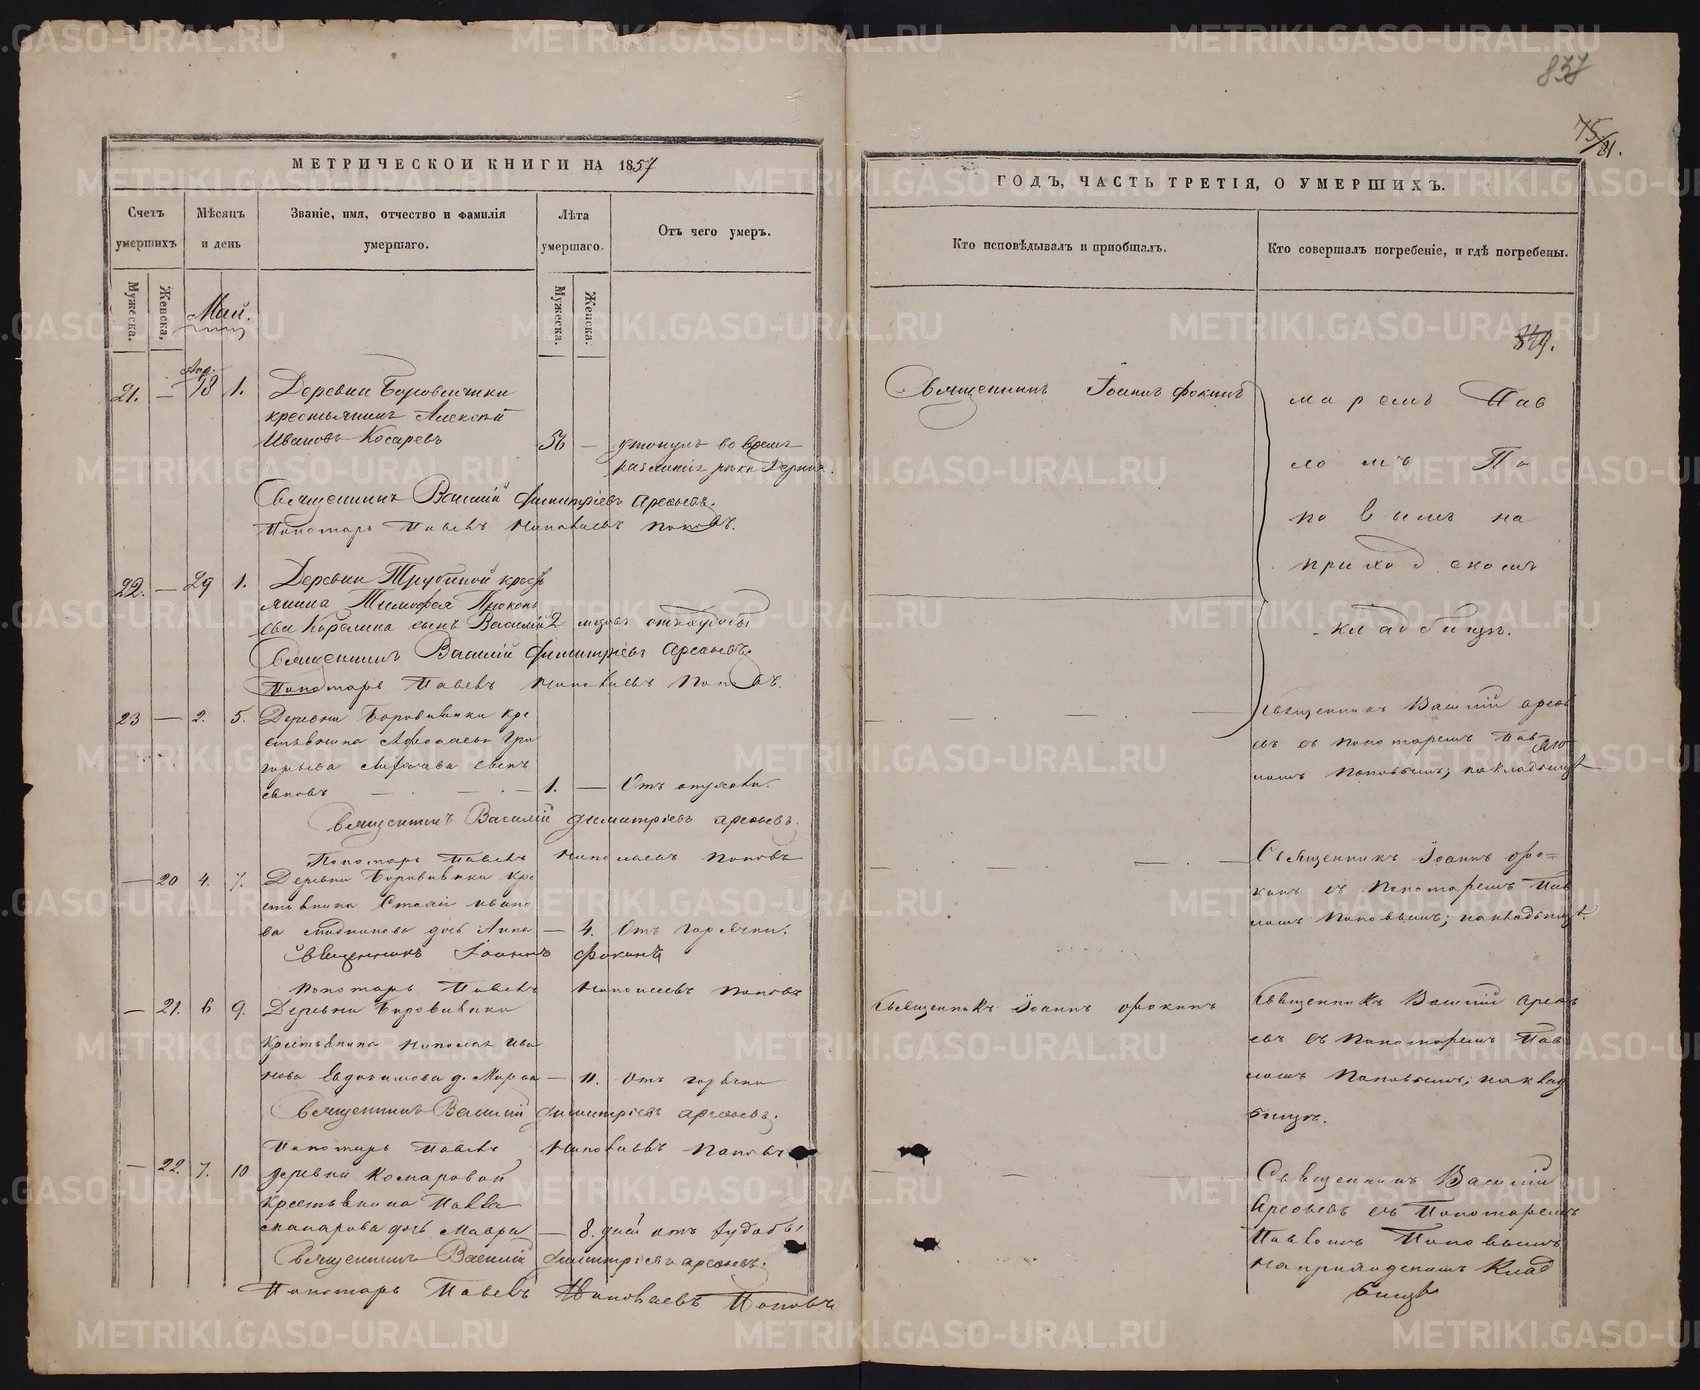 МЕТРИЧЕСКОЙ КНИГИ НА 1857
Счетъ умершихъ
Мѣсяцъ и день
Званіе, имя, отчество и фамилія умершаго.
Лѣта умершаго.
Отъ чего умеръ.
Мужеска.
Женска.
Мужеска.
Женска.
Май.
Апр.
21. — 18 1. Деревни Боровлянки
крестьянинъ Алексѣй
Ивановъ Косаревъ 56 — утонулъ во время
разлитія рѣки
Священникъ Василій Димитріевъ
Пономарь Павелъ Николаевъ Поповъ.
22. — 29 1. Деревни Трубиной кресть
янина Тимофея Прокопь
ева сынъ Василій 2 отъ худобы
Священникъ Василій Димитріевъ
Пономарь Павелъ Николаевъ Поповъ.
23 — 2. 5. Деревни Боровлянки кре
стьянина Григ
орьева сынъ
1. — Отъ
Священникъ Василій Димитріевъ
Пономарь Павелъ Николаевъ Поповъ
— 20 4. 7. Деревни Боровлянки кре
стьянина Ивано
ва дочь Анна — 4. Отъ горячки.
Священникъ Іоаннъ Фокинъ
Пономарь Павелъ Николаевъ Поповъ
— 21. 6 9. Деревни Боровлянки
крестьянина Николая Ива
нова Евдокимова д. Марѳа — 11. Отъ горячки
Священникъ Василій Димитріевъ
Пономарь Павелъ Николаевъ Поповъ
— 22. 7. 10 деревни Комаровой
крестьянина Павла
дочь Мавра — 8. дней отъ худобы
Священникъ Василій Димитріевъ
Пономарь Павелъ Николаевъ Поповъ
837
75/81.
ГОДЪ, ЧАСТЬ ТРЕТІЯ, О УМЕРШИХЪ.
Кто исповѣдывалъ и пріобщалъ.
Кто совершалъ погребеніе, и гдѣ погребены.
849.
Священникъ Іоаннъ Фокинъ
маремъ Пав
ломъ По
повымъ на
приходскомъ
кладбищѣ.
Священникъ Василій
съ пономаремъ Пав
ломъ Поповымъ; на кладбищѣ
Священникъ Іоаннъ Фо=
кинъ съ Пономаремъ Пав
ломъ Поповымъ; на кладбищѣ.
Священникъ Іоаннъ Фокинъ
Священникъ Василій
съ Пономаремъ Пав
ломъ Поповымъ; на клад
бищѣ.
Священникъ Василій
съ Пономаремъ
Павломъ Поповымъ
на приходскомъ клад
бищѣ
METRIKI.GASO-URAL.RU